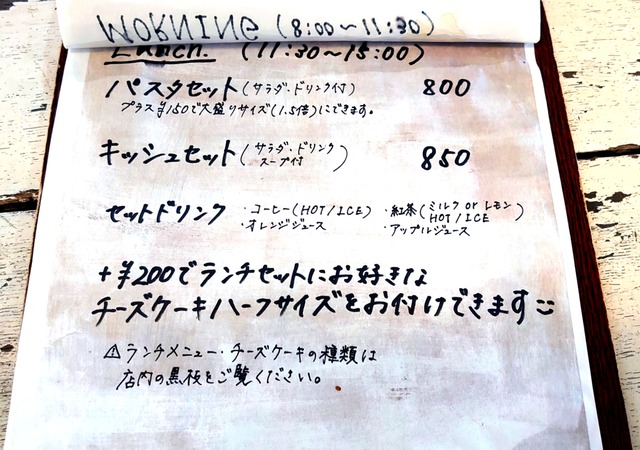 MORNING (8:00〜11:30)
Lunch. (11:30〜15:00)
パスタセット(サラダ・ドリンク付) 800
プラス¥150で大盛りサイズ(1.5倍)にできます。
キッシュセット(サラダ・ドリンク スープ付) 850
セットドリンク ・コーヒー(HOT/ICE) ・紅茶(ミルク or レモン HOT/ICE)
・オレンジジュース ・アップルジュース
+¥200でランチセットにお好きな
チーズケーキハーフサイズをお付けできます
⚠ランチメニュー・チーズケーキの種類は
店内の黒板をご覧ください。